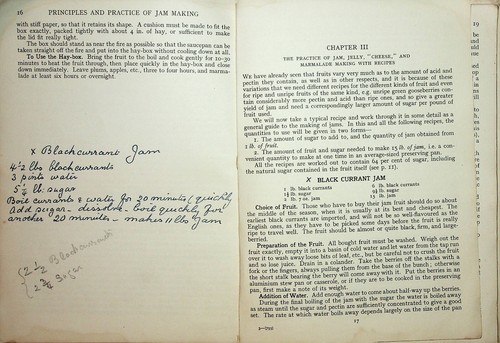 16 PRINCIPLES AND PRACTICE OF JAM MAKING
with stiff paper, so that it retains its shape. A cushion must be made to fit the
box exactly, packed tightly with about 4 in. of hay, or sufficient to make
the lid fit really tight.
The box should stand as near the fire as possible so that the saucepan can be
taken straight off the fire and put into the hay-box without cooling down at all.
To Use the Hay-box. Bring the fruit to the boil and cook gently for 10-30
minutes to heat the fruit through, then place quickly in the hay-box and close
down immediately. Leave plums, apples, etc., three to four hours, and marma-
lade at least six hours or overnight.
x Blackcurrant Jam
4½ lbs blackcurrants
3 pints water
lb. sugar
Boil currants & water for 20 minutes (quickly
Add sugar - dissolve. Boil quickly for
another 20 minutes - makes 11 lb Jam
2½ Blackcurrants
Sugar
CHAPTER III
THE PRACTICE OF JAM, JELLY, "CHEESE," AND
MARMALADE MAKING WITH RECIPES
We have already seen that fruits vary very much as to the amount of acid and
pectin they contain, as well as in other respects, and it is because of these
variations that we need different recipes for the different kinds of fruit and even
for ripe and unripe fruits of the same kind, e.g. unripe green gooseberries con-
tain considerably more pectin and acid than ripe ones, and so give a greater
yield of jam and need a correspondingly larger amount of sugar per pound of
fruit used.
We will now take a typical recipe and work through it in some detail as a
general guide to the making of jams. In this and all the following recipes, the
quantities to use will be given in two forms—
1. The amount of sugar to add to, and the quantity of jam obtained from
1 lb. of fruit.
2. The amount of fruit and sugar needed to make 15 lb. of jam, i.e. a con-
venient quantity to make at one time in an average-sized preserving pan.
All the recipes are worked out to contain 64 per cent of sugar, including
the natural sugar contained in the fruit itself (see p. 11).
X BLACK CURRANT JAM
1 lb. black currants 6 lb. black currants
lb. sugar lb. sugar
lb. 7 oz. jam 15 lb. jam
Choice of Fruit. Those who have to buy their jam fruit should do so about
the middle of the season, when it is usually at its best and cheapest. The
earliest black currants are imported, and will not be so well-flavoured as the
English ones, as they have to be picked some days before the fruit is really
ripe to travel well. The fruit should be almost or quite black, firm, and large-
berried.
Preparation of the Fruit. All bought fruit must be washed. Weigh out the
fruit exactly, empty it into a basin of cold water and let water from the tap run
over it to wash away loose bits of leaf, etc., but be careful not to crush the fruit
and so lose juice. Drain in a colander. Take the berries off the stalks with a
fork or the fingers, always pulling them from the base of the bunch; otherwise
the short stalk bearing the berry will come away with it. Put the berries in an
aluminium stew pan or casserole, or if they are to be cooked in the preserving
pan, first make a note of its weight.
Addition of Water. Add enough water to come about half-way up the berries.
During the final boiling of the jam with the sugar the water is boiled away
as steam until the sugar and pectin are sufficiently concentrated to give a good
set. The rate at which water boils away depends largely on the size of the pan
17
19